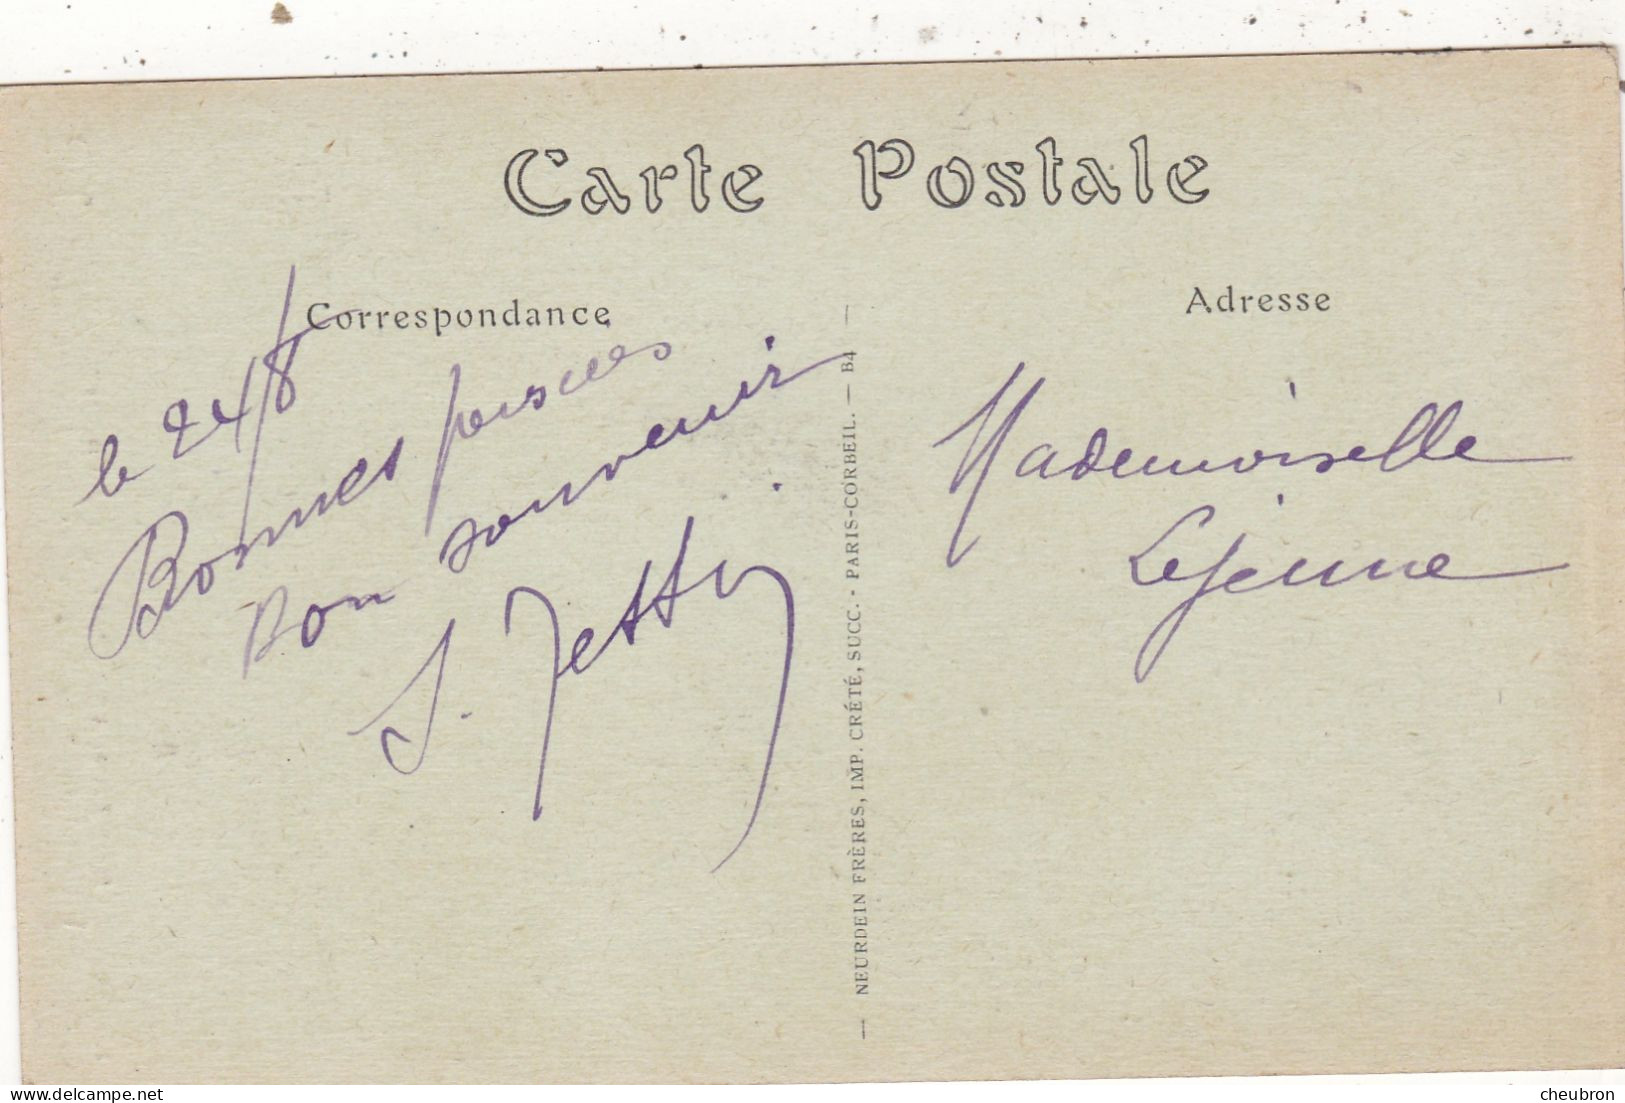 Carte Postale
Correspondance
le 24/8
Bonnes pensées
Bon souvenir
Adresse
Mademoiselle
Lejeune
— NEURDEIN FRÈRES, IMP. CRÉTÉ, SUCC. - PARIS-CORBEIL. — B4 —
cheubron